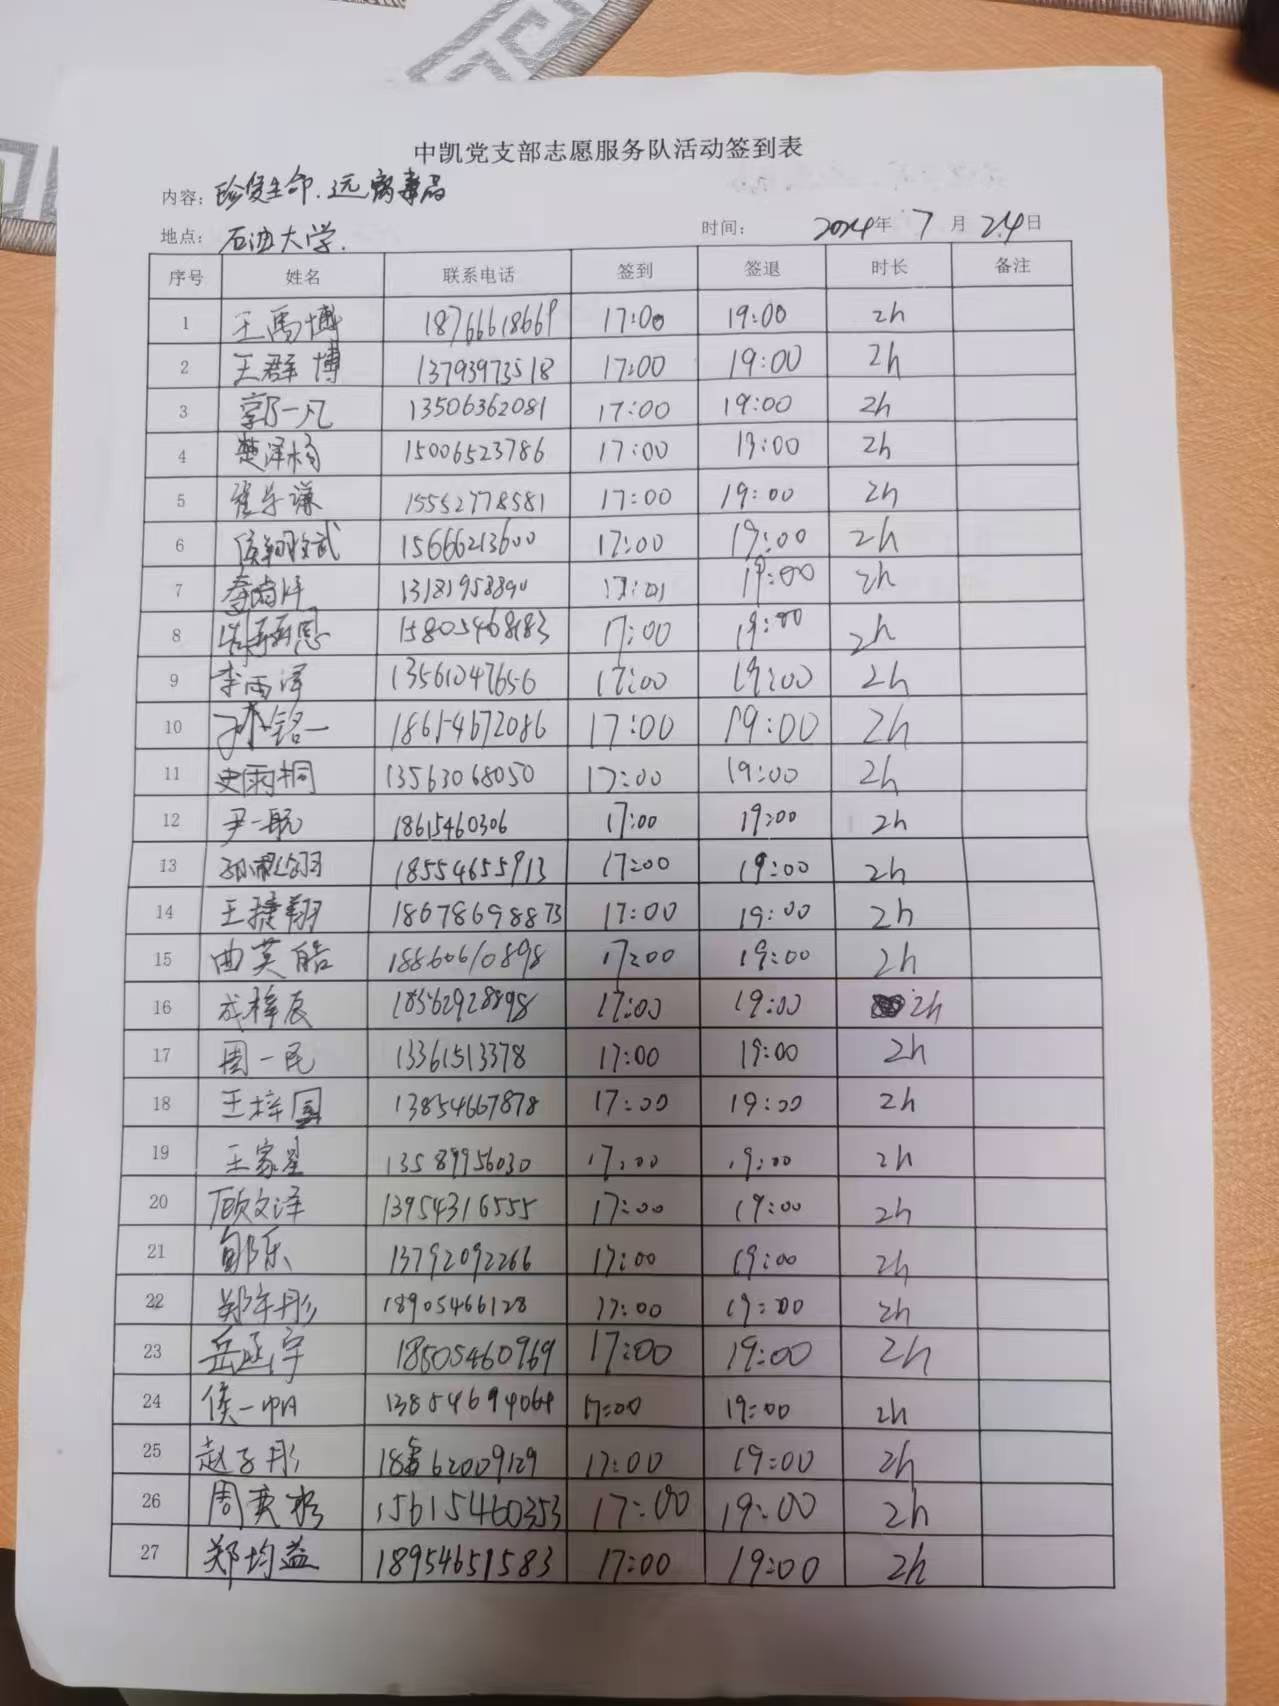 中凯党支部志愿服务队活动签到表
内容：珍爱生命.远离毒品
地点：石油大学.
时间： 2024年 7 月 24日
序号 姓名 联系电话 签到 签退 时长 备注
1 王禹博 18766618669 17:00 19:00 2h
2 王群博 13793973518 17:00 19:00 2h
3 郭一凡 13506362081 17:00 19:00 2h
4 楚泽杨 15006523786 17:00 19:00 2h
5 张乐谦 15552778581 17:00 19:00 2h
6 15666213600 17:00 19:00 2h
7 13181958890 19:00 2h
8 15805468183 17:00 19:00 2h
9 李雨泽 13561047656 17:00 19:00 2h
10 孙铭一 18615467 2086 17:00 19:00 2h
11 史雨桐 13563068050 17:00 19:00 2h
12 尹一航 18615460306 17:00 19:00 2h
13 18554655913 17:00 19:00 2h
14 王捷翔 18678698873 17:00 19:00 2h
15 曲英皓 18860610898 17:00 19:00 2h
16 成梓辰 17:00 19:00 2h
17 周一民 13361513378 17:00 19:00 2h
18 王梓 13854667878 17:00 19:00 2h
19 王家星 13589956030 17:00 19:00 2h
20 顾文泽 13954316555 17:00 19:00 2h
21 13792092266 17:00 19:00 2h
22 郑年彤 18905466128 17:00 19:00 2h
23 岳丞宇 18505460969 17:00 19:00 2h
24 侯一帆 13854694064 17:00 19:00 2h
25 赵子彤 18562009129 17:00 19:00 2h
26 周奕杉 15615460353 17:00 19:00 2h
27 郑均益 18954651583 17:00 19:00 2h